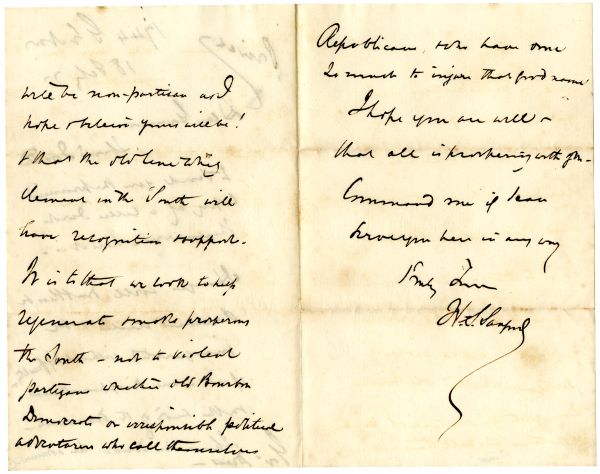 will be non-partisan as I
hope & believe yours will be!
& that the old line Whig
element in the South will
have recognition & support.
It is to that we look to help
regenerate & make prosperous
the South - not to violent
partizans whether old Bourbon
Democrats or irresponsible political
adventurers who call themselves
Republicans, who have done
so much to injure that good name
I hope you are well &
that all is prospering with you -
Command me if I can
serve you here in any way
Truly Yours
H. S. Sanford